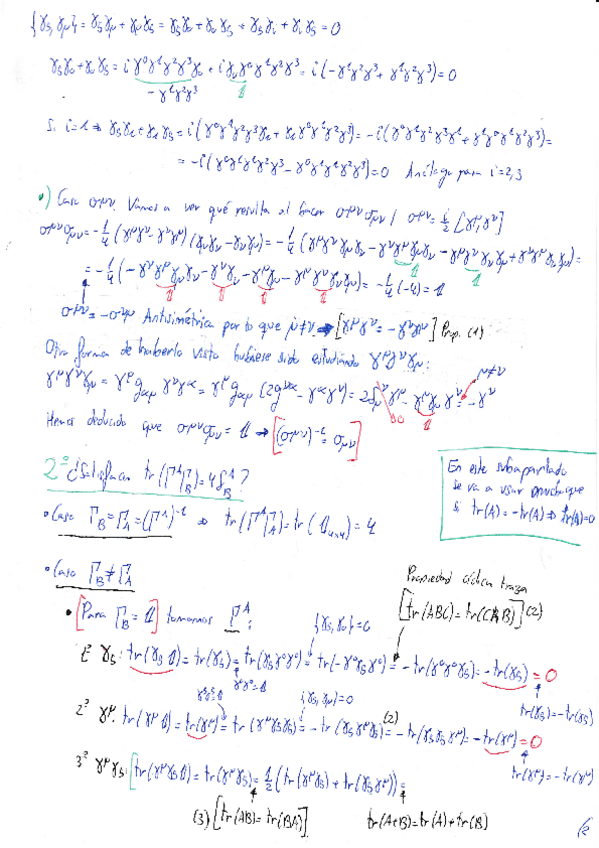 {γ₅, γμ} = γ₅γμ + γμγ₅ = γ₅γ₀ + γ₀γ₅ + γ₅γᵢ + γᵢγ₅ = 0
γ₅γ₀ + γ₀γ₅ = i γ⁰γ¹γ²γ³γ₀ + iγ₀γ⁰γ¹γ²γ³ = i(-γ¹γ²γ³ + γ¹γ²γ³) = 0
-γ¹γ²γ³ 𝟙
Si i=1 ⇒ γ₅γ₁ + γ₁γ₅ = i(γ⁰γ¹γ²γ³γ₁ + γ₁γ⁰γ¹γ²γ³) = -i(γ⁰γ¹γ²γ³γ¹ + γ¹γ⁰γ¹γ²γ³) =
= -i(γ⁰γ¹γ¹γ²γ³ - γ⁰γ¹γ¹γ²γ³) = 0 Análogo para i=2,3
•) Caso σμν. Vamos a ver qué resulta al hacer σ^μν σμν / σ^μν = i/2 [γ^μ, γ^ν]
σ^μν σμν = -1/4 (γ^μγ^ν - γ^νγ^μ)(γμγν - γνγμ) = -1/4 (γ^μγ^νγμγν - γ^νγ^μγμγν - γ^μγ^νγνγμ + γ^νγ^μγνγμ) =
𝟙 𝟙
= -1/4 (-γ^νγ^μγμγν - γ^νγν - γ^μγμ - γ^μγ^νγνγμ) = -1/4 (-4) = 𝟙
𝟙 𝟙 𝟙 𝟙
σ^μν = -σ^νμ Antisimétrica por lo que μ≠ν ⇒ [γ^μγ^ν = -γ^νγ^μ] Prop. (1)
Otra forma de haberlo visto hubiese sido estudiando γ^μγ^νγμ:
μ≠ν
γ^μγ^νγμ = γ^μ gαμ γ^νγ^α = γ^μ gαμ (2g^να - γ^αγ^ν) = 2δμ^ν γ^μ - γ^μγμ γ^ν = -γ^ν
0 𝟙
Hemos deducido que σ^μν σμν = 𝟙 ⇒ [(σ^μν)⁻¹ = σμν]
2º ¿Satisfacen tr(Γ^AΓ_B) = 4δ_B^A?
En este subapartado
se va a usar mucho que
si tr(A) = -tr(A) ⇒ tr(A)=0
• Caso Γ_B = Γ_A = (Γ^A)⁻¹ ⇒ tr(Γ^AΓ_A) = tr(𝟙₄ₓ₄) = 4
• Caso Γ_B ≠ Γ_A
Propiedad cíclica traza
[tr(ABC) = tr(CAB)] (2)
• [Para Γ_B = 𝟙] tomamos Γ^A:
{γ₅, γ₀} = 0
1º γ₅: tr(γ₅ 𝟙) = tr(γ₅) = tr(γ₅γ⁰γ⁰) = tr(-γ⁰γ₅γ⁰) = -tr(γ⁰γ⁰γ₅) = -tr(γ₅) = 0
γ⁰γ⁰=𝟙
tr(γ₅) = -tr(γ₅)
γ₅γ₅=𝟙 {γ₅, γμ} = 0
2º γ^μ: tr(γ^μ 𝟙) = tr(γ^μ) = tr(γ^μγ₅γ₅) = -tr(γ₅γ^μγ₅) = (2) -tr(γ₅γ₅γ^μ) = -tr(γ^μ) = 0
tr(γ^μ) = -tr(γ^μ)
3º γ^μγ₅: [tr(γ^μγ₅𝟙) = tr(γ^μγ₅) = 1/2 (tr(γ^μγ₅) + tr(γ₅γ^μ)) =
(3) [tr(AB) = tr(BA)] tr(A+B) = tr(A) + tr(B)